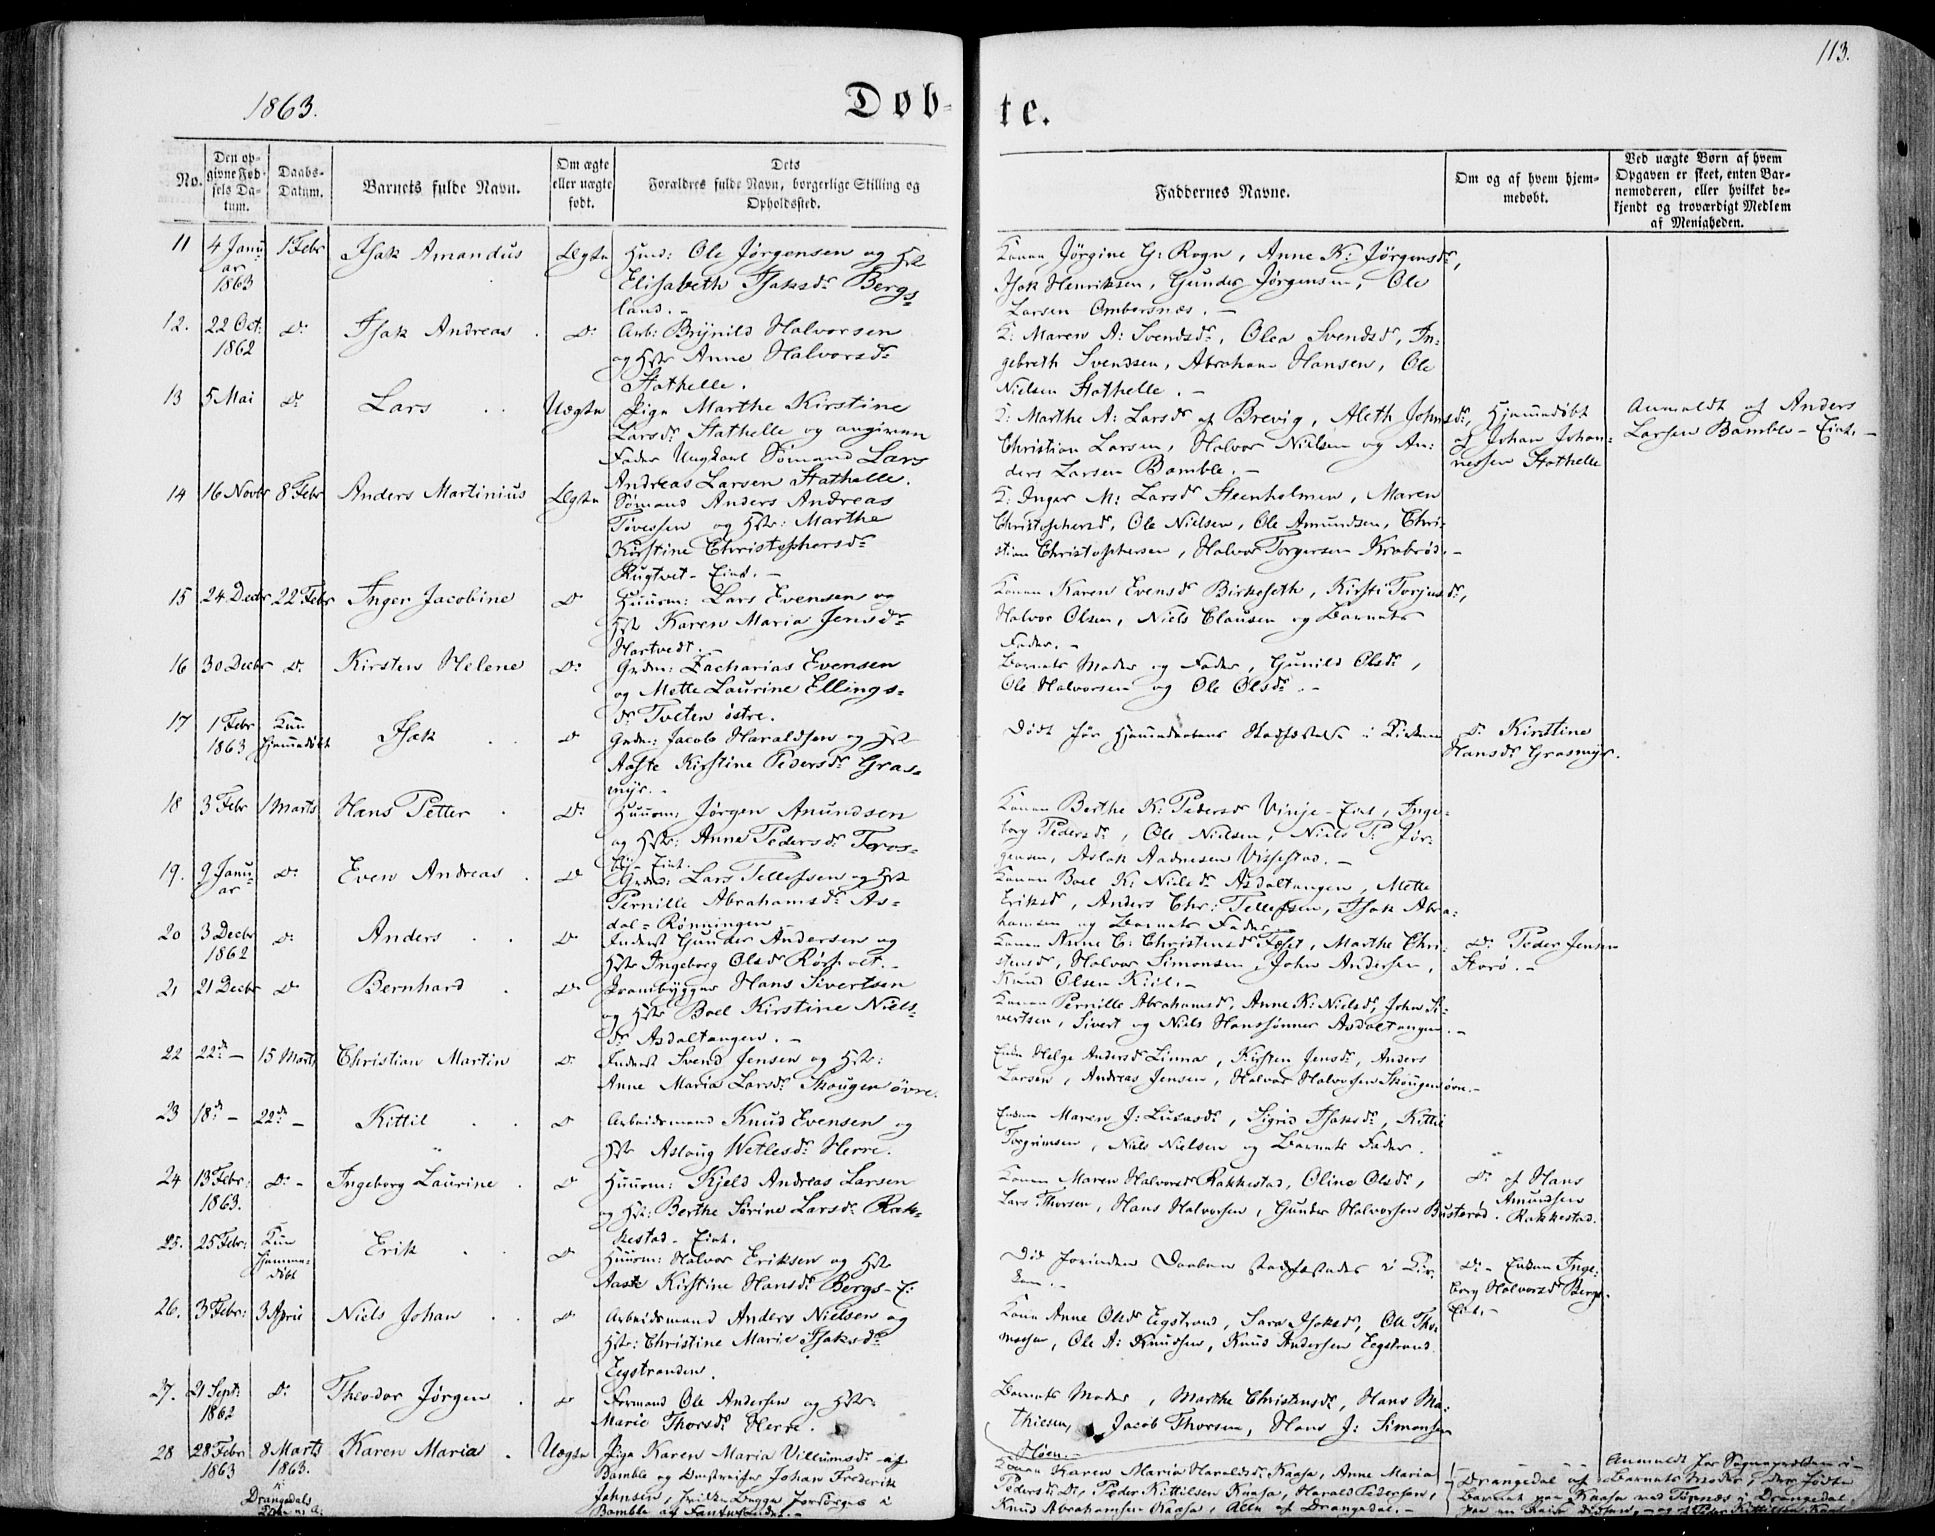 113.
1863.
Døb-
te.
No.
Den op-
givne Fød-
sels Da-
tum.
Daabs-
Datum.
Barnets fulde Navn.
Om ægte
eller uægte
født.
Dets
Forældres fulde Navn, borgerlige Stilling og
Opholdssted.
Faddernes Navne.
Om og af hvem hjem-
medøbt.
Ved uægte Børn af hvem
Opgaven er skeet, enten Bar-
nemoderen, eller hvilket be-
kjendt og troværdigt Medlem
af Menigheden.
11 4 Janu-
ar
1863
1 Febr
Isak Amandus
Ægte
Ole Jørgensen og Hst
Elisabeth Isaksdr Bergs-
land.-
Konen Jørgine G: Rogn, Anne K: Jørgensdr,
Isak Henriksen, Gunder Jørgensen, Ole
Larsen Ombersnæs.-
12. 22 Oct:
1862
Do
Isak Andreas
Do
Arb: Brynild Halvorsen
og Hst Anne Halvorsdr
Stathelle.
K: Maren A: Svendsdr, Olea Svendsdr, In-
gebreth Svendsen, Abraham Hansen, Ole
Nielsen Stathelle.-
13 5 Mai
Do
Lars
Uægte
Pige Marthe Kirstine
Larsdr Stathelle og angiven
Fader Ungkarl Sømand Lars
Andreas Larsen Stathelle.
K: Marthe A: Larsdr af Brevig, Aleth Johnsdr,
Christian Larsen, Halvor Nielsen og An-
ders Larsen Bamble.-
Hjemmedøbt
af Johan Johan-
nessen Stathelle
Anmeldt af Anders
Larsen Bamble-Eiet.-
14 16 Novbr
8 Febr
Anders Martinius
Ægte
Sømand Anders Andreas
Tovessen og Hst: Marthe
Kirstine Christophersdr
Rugtvet-Eiet.-
K: Inger M: Larsdr Steenholmen, Maren
Christophersdr, Ole Nielsen, Ole Amundsen, Chri-
stian Christophersen, Halvor Torgersen Krabrød.-
15 24 Decbr
22 Febr
Inger Jacobine
Do
Huusm: Lars Evensen og
Hst Karen Maria Jensdr
Hartvedt.-
Konen Karen Evensdr Birkeseth, Kirsti Torjusdr,
Halvor Olsen, Niels Clausen og Barnets
Fader.-
16 30 Decbr
Do
Kirsten Helene
Do
Grdm: Zacharias Evensen
og Mette Laurine Ellings-
dr Tveten østre.
Barnets Moder og Fader, Gunild Olsdr,
Ole Halvorsen og Ole Olsdr.-
17 1 Febr
1863
Kun
hjemmedøbt
Isak
Do
Grdm: Jacob Haraldsen og Hst
Aaste Kirstine Pedersdr Gras-
myr.-
Dødt før Hjemmedaabens Stadfæstelse i Kirken
Do Kirstine
Hansdr Grasmyr.
18 3 Febr
1 Marts
Hans Petter
Do
Huusm: Jørgen Anundsen
og Hst: Anne Pedersdr Fros-
Eiet.
Konen Berthe K: Pedersdr Vinje-Eiet, Inge-
borg Pedersdr, Ole Nielsen, Niels P: Jør-
gensen, Aslak Aadnesen Vissestad.-
19. 9 Janu-
ar
Do
Even Andreas
Do
Grdm: Lars Tellefsen og Hst
Pernille Abrahamsdr As-
dal-Rønningen
Konen Boel K: Nielsdr Asdaltangen, Mette
Eriksdr, Anders Chr: Tellefsen, Isak Abra-
hamsen og Barnets Fader.
20 3 Decbr
1862
Do
Anders
Do
Inderst Gunder Andersen og
Hst Ingeborg Olsdr Rørholt.-
Konen Anne C: Christensdr, Marthe Chri-
stensdr, Halvor Simonsen, John Andersen,
Knud Olsen Kiil.-
Do Peder Jensen
Storø.-
21 21 Decbr
Do
Bernhard
Do
Prambygger Hans Sivertsen
og Hst Boel Kirstine Niels-
dr Asdaltangen.-
Konen Pernille Abrahamsdr, Anne K: Nielsdr, John Si-
vertsen, Sivert og Niels Hanssønner Asdaltangen.-
22 22d-
15 Marts
Christian Martin
Do
Inderst Svend Jensen og Hst:
Anne Maria Larsdr Skougen øvre.
Helge Andersdr Linna, Kirsten Jensdr, Anders
Larsen, Andreas Jensen, Halvor Halvorsen Skougen øvre.-
23 18d-
22d-
Kittil
Do
Arbeidsmand Knud Evensen og
Hst Aslaug Wetlesdr Herre.
Maren J: Lucasdr, Sigrid Isaksdr, Kittil
Torgrimsen, Niels Nielsen og Barnets Fader.
24 13 Febr:
1863.
Do-
Ingeborg Laurine
Do
Huusm: Kjeld Andreas Larsen
og Hst: Berthe Sørine Larsdr Rak-
kestad-Eiet.
Konen Maren Halvorsdr Rakkestad, Oline Olsdr,
Lars Thorsen, Hans Halvorsen, Gunder Halvorsen Busterød.
Do af Hans
Amundsen
Rakkestad.
25. 25 Febr:
Kun
hjemme-
døbt
Erik
Do
Huusm: Halvor Eriksen og Hst
Aaste Kirstine Hansdr Bergs-E:
Død forinden Daaben stadfæstedes i Kir-
ken.-
Do- Enken Inge-
borg Halvorsdr Bergs-
Eiet.-
26. 3 Febr:
3 April
Niels Johan
Do
Arbeidsmand Anders Nielsen og
Hst: Christine Marie Isaksdr
Eegstranden.
Konen Anne Olsdr Eegstrand, Sara Isaksdr, Ole Tho-
massen, Ole A: Knudsen, Knud Andersen Eegstrand
27. 21 Sept:
1862
Do
Theodor Jørgen
Do
Formand Ole Andersen og Hst:
Marie Thorsdr Herre.
Barnets Moder, Marthe Christensdr, Hans Ma-
thiesen, Jacob Thorsen, Hans J: Simonsen
Høen.-
28 28 Febr
1863
8 Marts
1863.
i
Drangedals
Karen Maria
Uægte
Pige Karen Maria Villumsdr af
Bamble og Johan Frederik
Johnsen, begge forsørges i
Bamble af Fantefondet.-
Konen Karen Maria Haraldsdr Kaasa, Anne Maria
Pedersdr, Peder Kittilsen Kaasa, Harald Pedersen,
Knud Abrahamsen Kaasa, Alle af Drangedal.-
Drangedal af
Anmeldt for Sognepræsten i
Barnets Moder, der fødte
Barnet paa Kaasa ved Tørnæs i Drangedal.